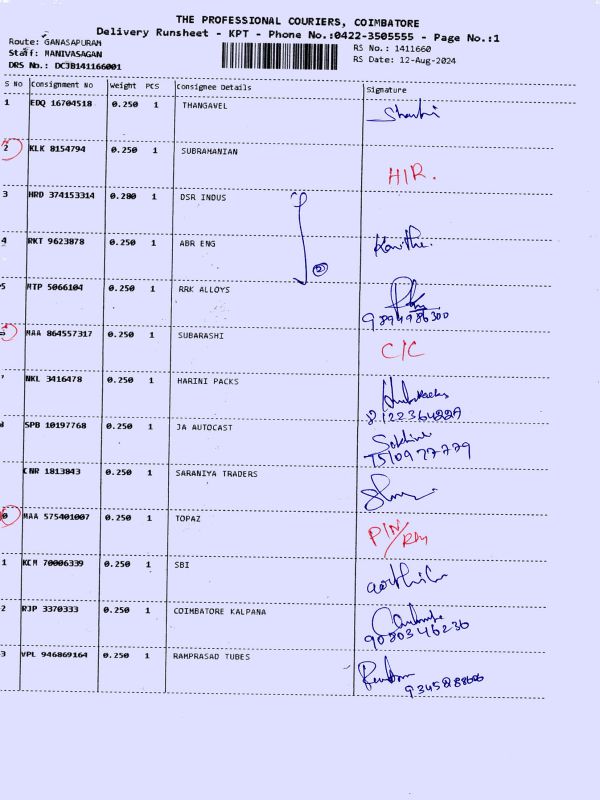 THE PROFESSIONAL COURIERS, COIMBATORE
Delivery Runsheet - KPT - Phone No.:0422-3505555 - Page No.:1
Route: GANASAPURAM
Staff: MANIVASAGAN
DRS No.: DCJB141166001
RS No.: 1411660
RS Date: 12-Aug-2024
S No Consignment No Weight PCS Consignee Details Signature
1 EDQ 16704518 0.250 1 THANGAVEL
2 KLK 8154794 0.250 1 SUBRAMANIAN H/R.
3 HRD 374153314 0.280 1 DSR INDUS
4 RKT 9623878 0.250 1 ABR ENG
5 MTP 5066104 0.250 1 RRK ALLOYS
9894986300
MAA 864557317 0.250 1 SUBARASHI C/C
NKL 3416478 0.250 1 HARINI PACKS
SPB 10197768 0.250 1 JA AUTOCAST
CNR 1813843 0.250 1 SARANIYA TRADERS
0 MAA 575401007 0.250 1 TOPAZ
1 KCM 70006339 0.250 1 SBI
2 RJP 3370333 0.250 1 COIMBATORE KALPANA
9080346236
3 VPL 946869164 0.250 1 RAMPRASAD TUBES